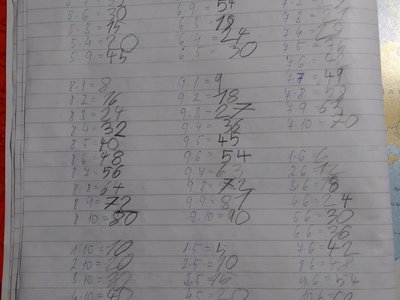 5.3=15
5.4=20
5.9=45
8.1=8
8.2=16
8.3=24
8.4=32
8.5=40
8.6=48
8.7=56
8.8=64
8.9=72
8.10=80
1.10=10
2.10=20
3.10=30
4.10=40
6.9=54
6.3=18
6.4=24
6.5=30
9.1=9
9.2=18
9.3=27
9.4=36
9.5=45
9.6=54
9.7=63
9.8=72
9.9=81
9.10=90
1.5=5
2.5=10
3.5=15
4.5=20
7.7=49
7.9=63
7.10=70
1.6=6
2.6=12
3.6=18
4.6=24
5.6=30
6.6=36
7.6=42
8.6=48
9.6=54
10.6=60